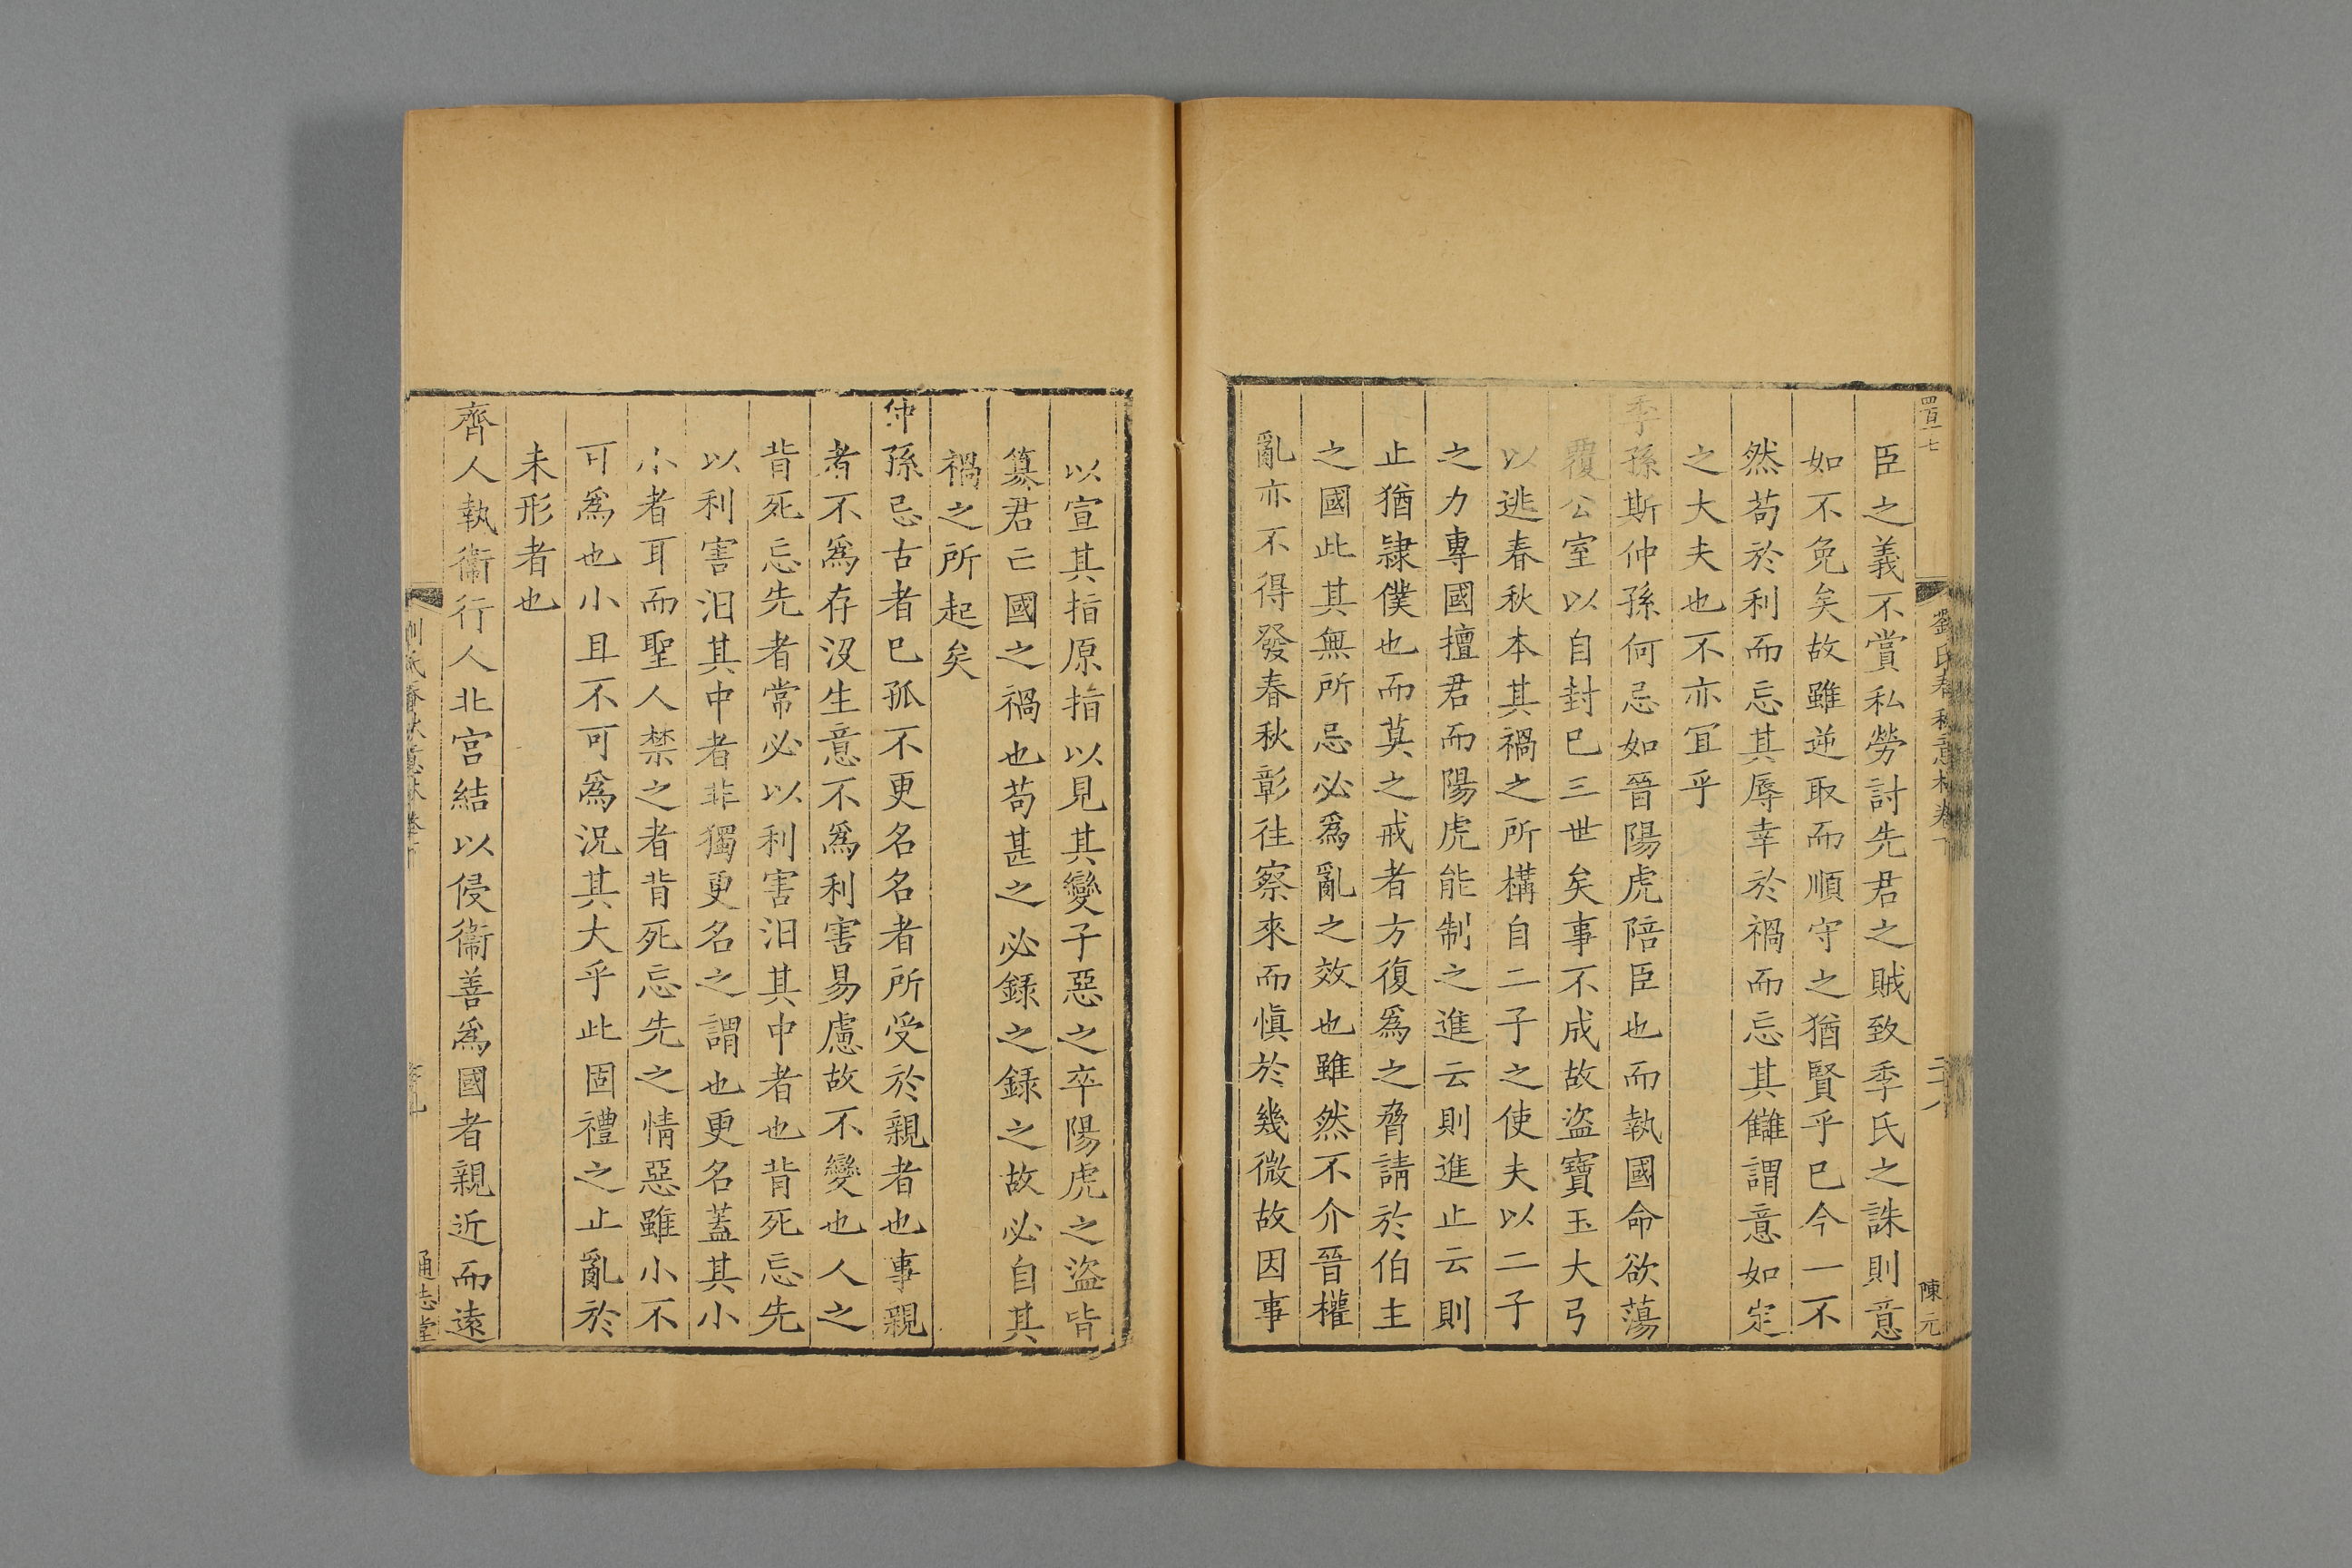 四百十七
劉氏春秋意林卷下
二十八
陳元
臣之義不賞私勞討先君之賊致季氏之誅則意
如不免矣故雖逆取而順守之猶賢乎已今一不
然苟於利而忘其辱幸於禍而忘其讎謂意如定
之大夫也不亦冝乎
季孫斯仲孫何忌如晉陽虎陪臣也而執國命欲蕩
覆公室以自封巳三世矣事不成故盜寶玉大弓
以逃春秋本其禍之所構自二子之使夫以二子
之力專國擅君而陽虎能制之進云則進止云則
止猶隷僕也而莫之戒者方復爲之脅請於伯主
之國此其無所忌必爲亂之效也雖然不介晉權
亂亦不得發春秋彰往察來而慎於幾微故因事
以宣其指原指以見其變子惡之卒陽虎之盜皆
簒君亡國之禍也苟甚之必録之録之故必自其
禍之所起矣
仲孫忌古者巳孤不更名名者所受於親者也事親
者不爲存沒生意不爲利害易慮故不變也人之
背死忘先者常必以利害汨其中者也背死忘先
以利害汨其中者非獨更名之謂也更名蓋其小
小者耳而聖人禁之者背死忘先之情惡雖小不
可爲也小且不可爲況其大乎此固禮之止亂於
未形者也
齊人執衞行人北宮結以侵衞善爲國者親近而遠
通志堂